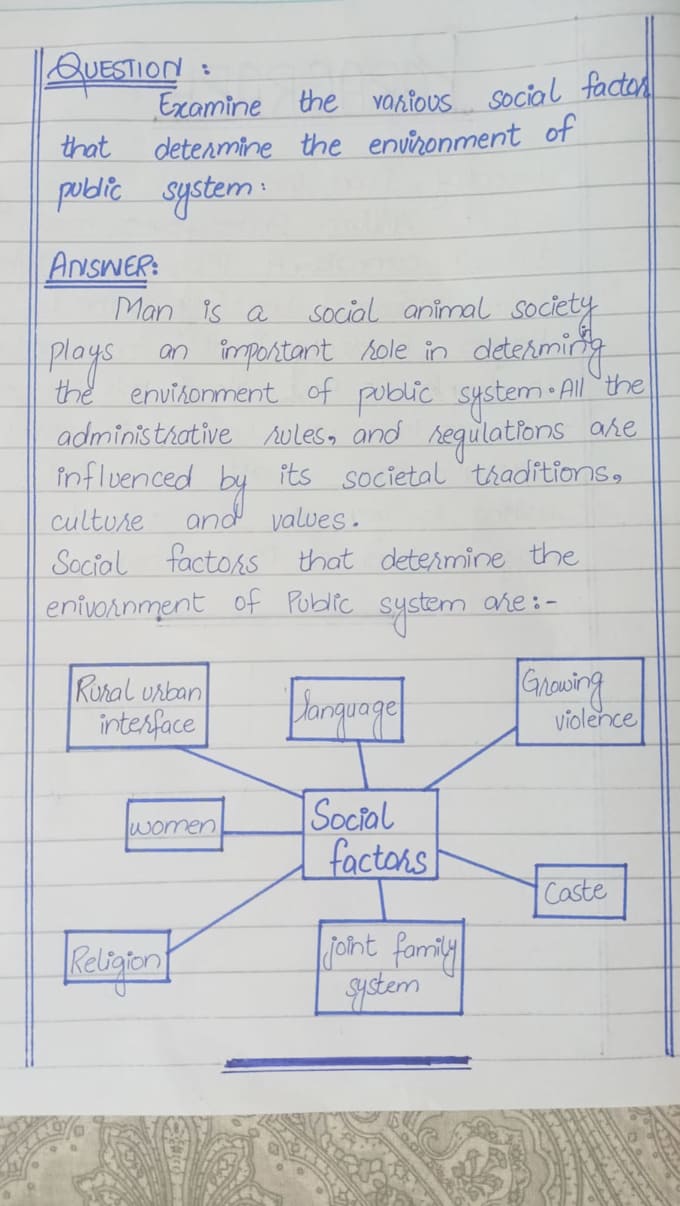 QUESTION :
Examine the various social factors
that determine the environment of
public system:
ANSWER:
Man is a social animal society
plays an important role in determing
the environment of public system. All the
administrative rules, and regulations are
influenced by its societal traditions,
culture and values.
Social factors that determine the
enivornment of Public system are:-
Rural urban
interface
language
Growing
violence
women
Social
factors
Caste
Religion
joint family
system